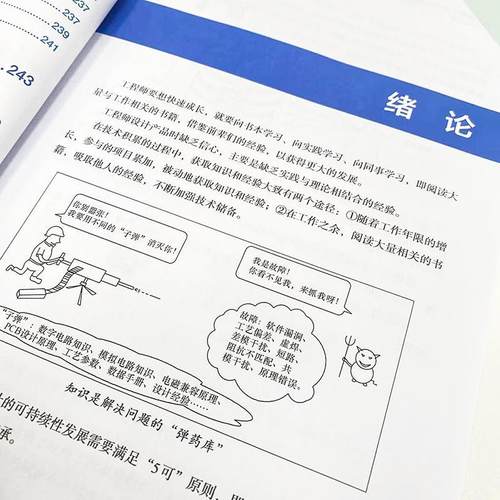 237
237
239
241
243
绪论
工程师要想快速成长，就要向书本学习、向实践学习、向同事学习，即阅读大
量与工作相关的书籍，借鉴前辈们的经验，以获得更大的发展。
工程师设计产品时缺乏信心，主要是缺乏实践与理论相结合的经验。
在技术积累的过程中，获取知识和经验大致有两个途径：①随着工作年限的增
长，参与的项目累加，被动地获取知识和经验；②在工作之余，阅读大量相关的书
籍，吸取他人的经验，不断加强技术储备。
你别嚣张！
我要用不同的“子弹”消灭你！
我是故障！
你看不见我，来抓我呀！
“子弹”：数字电路知识、模拟电路知识、电磁兼容原理、
PCB设计原理、工艺参数、数据手册、设计经验……
故障：软件漏洞、
工艺偏差、虚焊、
差模干扰、短路、
阻抗不匹配、共
模干扰、原理错误。
知识是解决问题的“弹药库”
的可持续性发展需要满足“5可”原则，即
承。